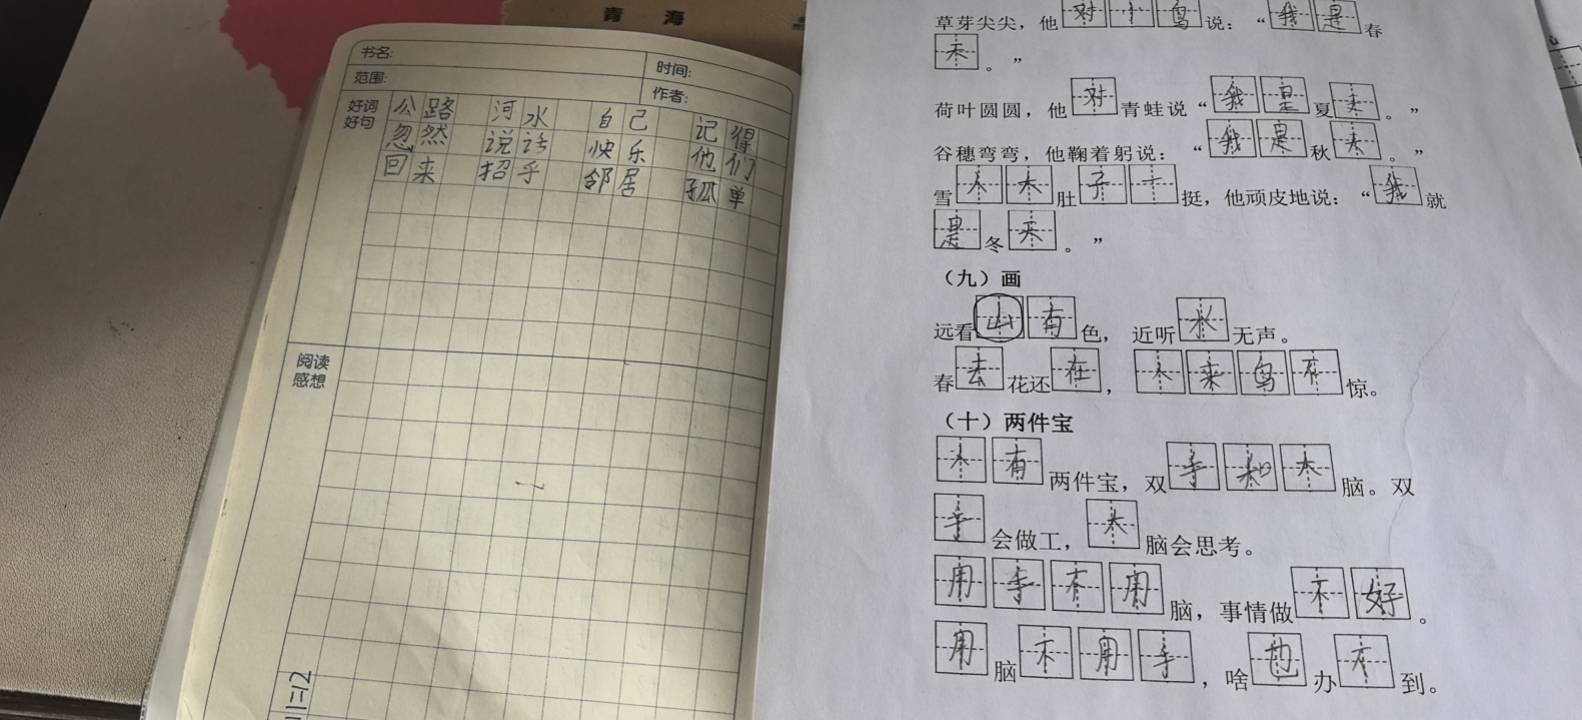 青 海
书名:
时间:
范围:
作者:
好词
好句
公路 河水 自己 记得
忽然 说话 快乐 他们
回来 招乎 邻居 孤单
阅读
感想
草芽尖尖，他对小鸟说：“我是春
天。”
荷叶圆圆，他对青蛙说“我是夏天。”
谷穗弯弯，他鞠着躬说：“我是秋天。”
雪人大肚子一挺，他顽皮地说：“我就
是冬天。”
（九）画
远看山有色，近听水无声。
春去花还在，人来鸟不惊。
（十）两件宝
人有两件宝，双手和大脑。双
手会做工，大脑会思考。
用手不用脑，事情做不好。
用脑不用手，啥也办不到。